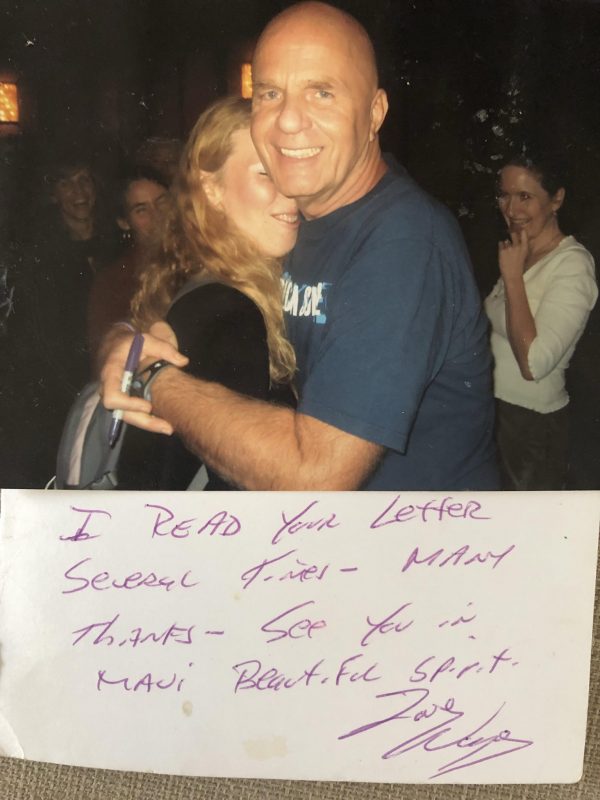 I READ YOUR LETTER
SEVERAL TIMES - MANY
THANKS - SEE YOU IN
MAUI BEAUTIFUL SPIRIT.
Love,
Wayne